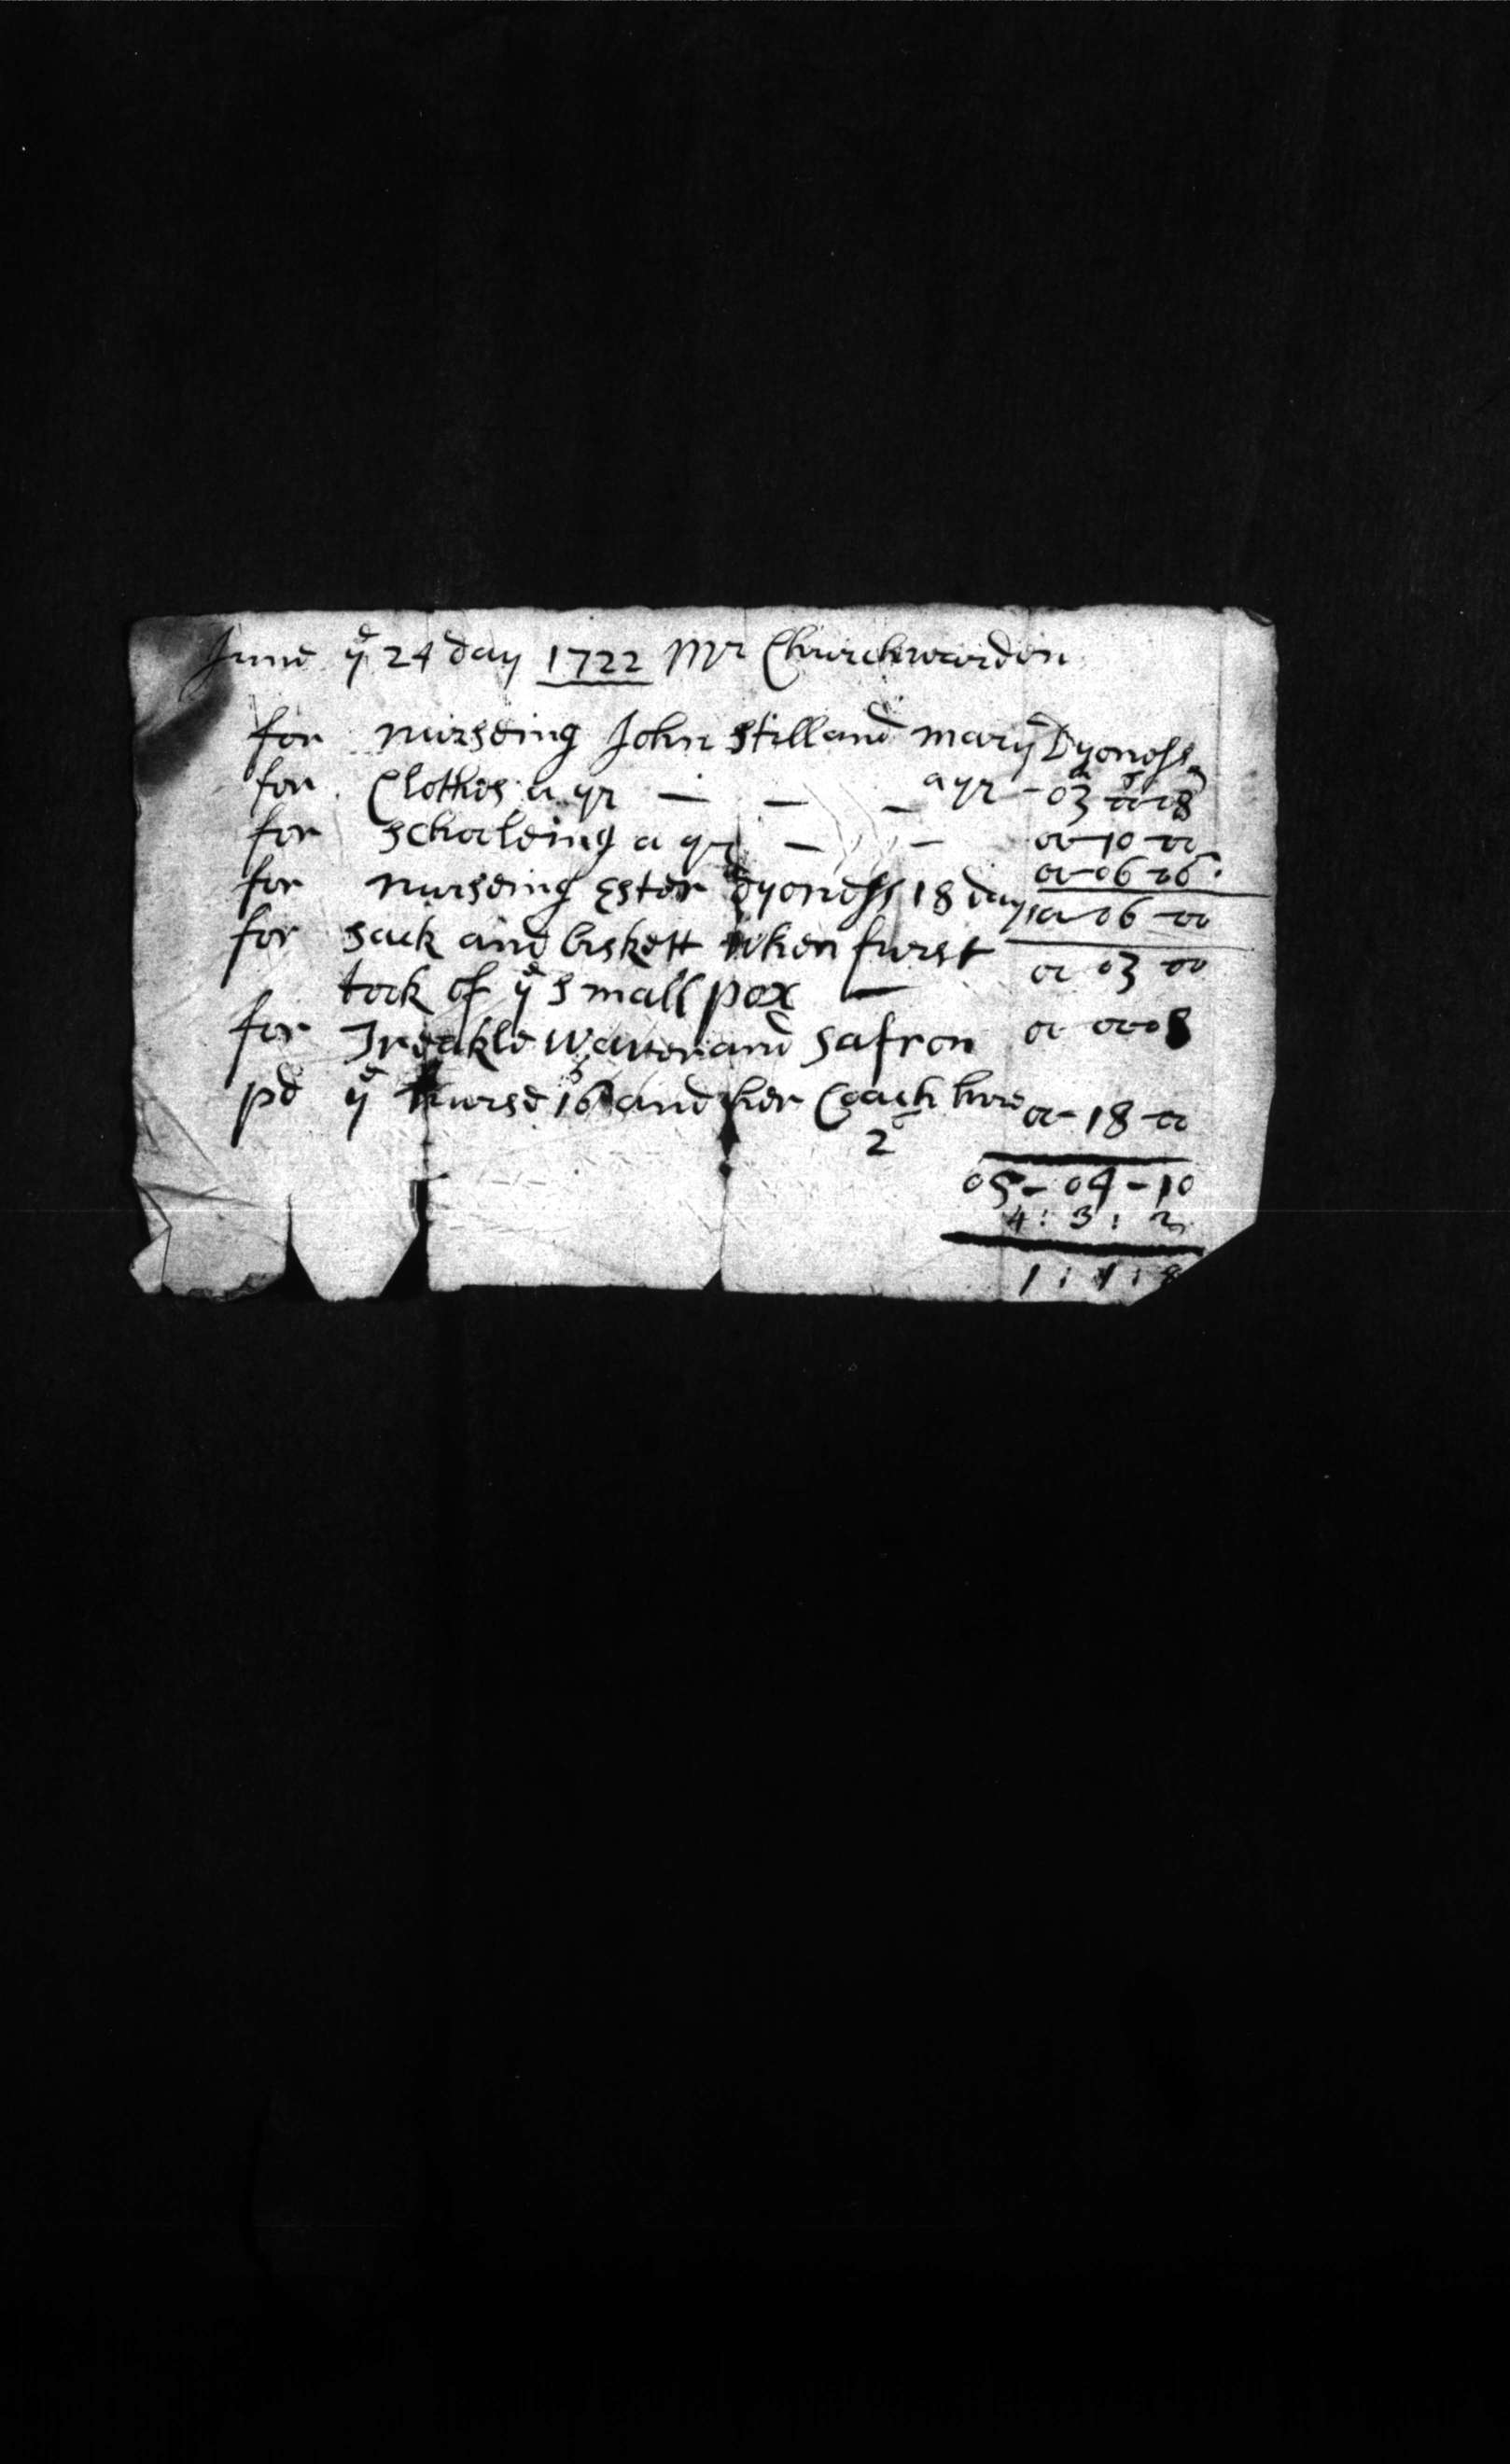 June ye 24 day 1722 Mr Churchwarden
for nurseing John Still and mary Dyoness
a qr - 03 - 00 - 08
for Clothes a qr — — — 00 - 10 - 00
for schooleing a qr — — 00 - 06 - 06
for nurseing Ester Dyoness 18 days 00 - 06 - 00
for sack and biskett when furst
took of ye small pox — 00 03 00
for Treakle water and safron 00 00 08
pd ye nurse 16s and her Coach hire 00 - 18 - 00
2s
05 - 04 - 10
4 : 3 : 2
1 : 1 : 8